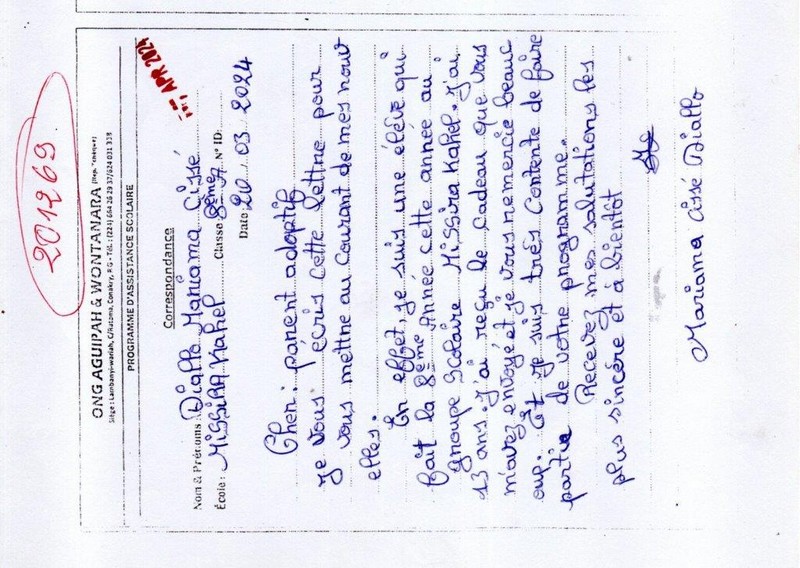 201269
ONG AGUIPAH & WONTANARA (Rep. Tchèque)
Siège : Lambanyi-wariah, C/Ratoma, Conakry, RG - Tél. : (224) 664 28 29 37/624 031 338
PROGRAMME D'ASSISTANCE SCOLAIRE
APR 2024
Correspondance
Nom & Prénoms : Diallo Mariama Cissé
École : Missira Kahel Classe 8ème N° ID:
Date 20 03 2024
Cher : parent adoptif
je vous écris cette lettre pour
vous mettre au courant de mes nouv
elles.
En effet, je suis une élève qui
fait la 8ème Année cette année au
groupe Scolaire Missira Kahel. j'ai
13 ans. j'ai reçu le cadeau que vous
m'avez envoyé et je vous remercie beauc
oup. Et je suis très contente de faire
partie de votre programme.
Recevez mes salutations les
plus sincère et à bientôt
Mariama Cissé Diallo